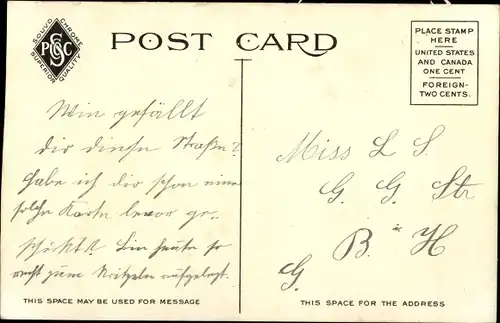 SOUVO CHROME
PSCC
SUPERIOR QUALITY
POST CARD
PLACE STAMP
HERE
UNITED STATES
AND CANADA
ONE CENT
FOREIGN-
TWO CENTS.
Wie gefällt
dir diese Straße?
Habe ich dir schon eine
solche Karte bevor ge-
schickt? Bin heute so
recht zum Kritzeln aufgelegt.
Miss L S.
G. G. Str
B. in H
G.
THIS SPACE MAY BE USED FOR MESSAGE
THIS SPACE FOR THE ADDRESS